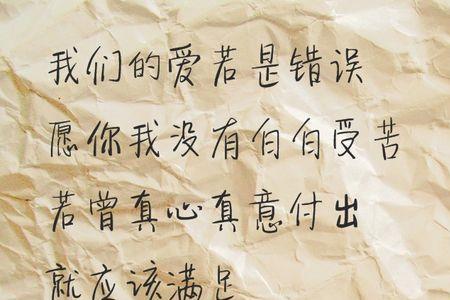 我们的爱若是错误
愿你我没有白白受苦
若曾真心真意付出
就应该满足